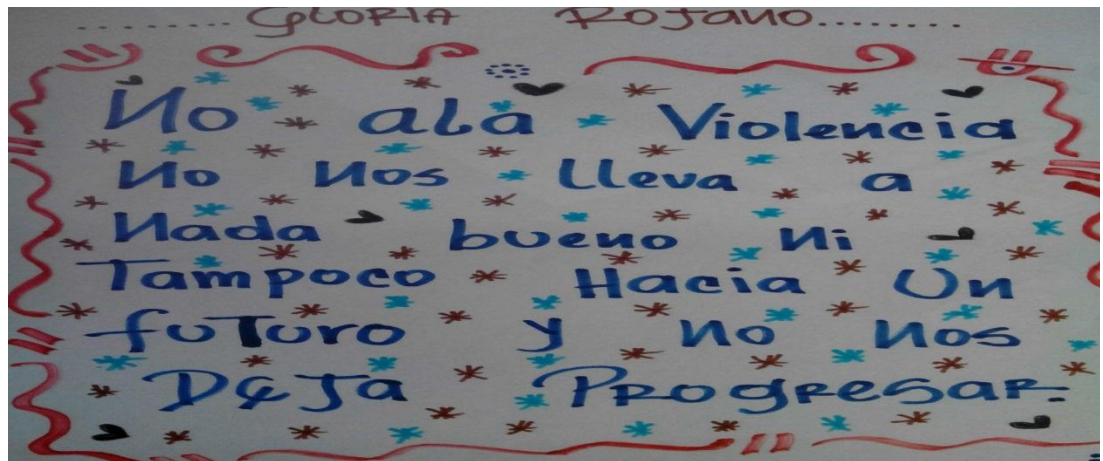 ........GLORIA ROJANO........
No ala Violencia
No Nos Lleva a
Nada bueno Ni
Tampoco Hacia Un
fuTuro y No Nos
DeJa PRogResaR.